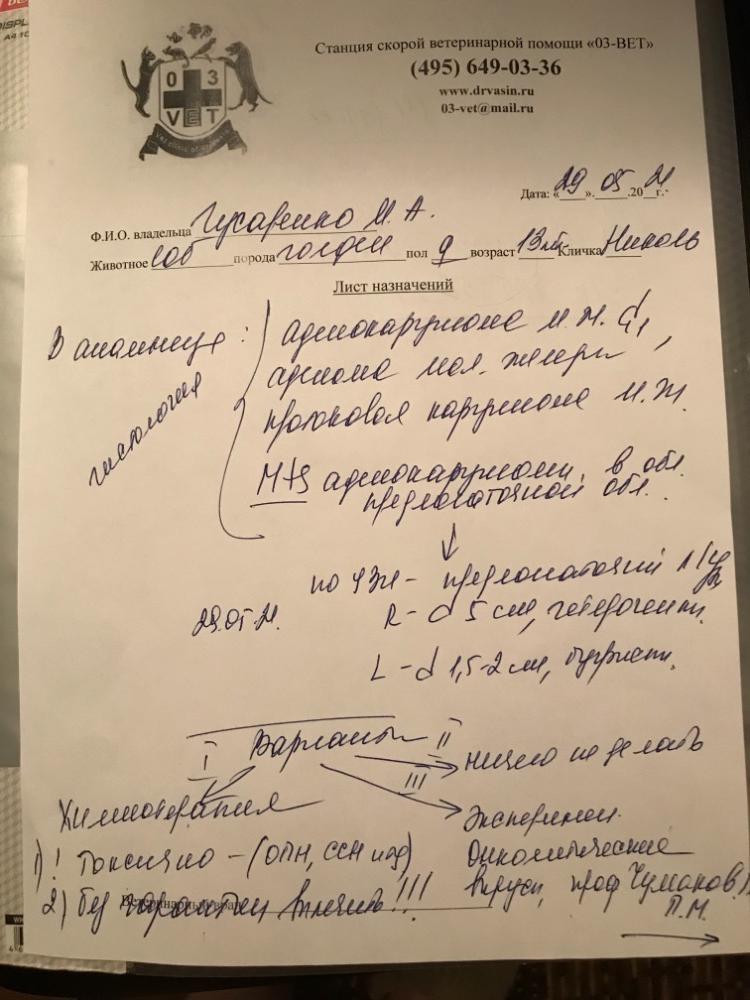 DISPL
A4
0 3
VET
Станция скорой ветеринарной помощи «03-ВЕТ»
(495) 649-03-36
www.drvasin.ru
03-vet@mail.ru
Дата: «29».05.2021г.
Ф.И.О. владельца Гусаренко М. А.
Животное соб порода голден пол возраст 13 лет Кличка Николь
Лист назначений
В анамнезе:
гистология
аденокарцинома м.ж.
аденома мол. железы,
протоковая карцинома м.ж.
Mts аденокарциномы в обл.
предлопаточной обл.
по УЗИ - предлопаточный л/у
29.05.21. R - d 5 см, гетерогенн.
L - d 1,5-2 см, бугрист.
Варианты
I II III
ничего не делать
Химиотерапия
Эксперимен.
1) ! Токсично - (ОПН, ССН и др)
Онколитические
2) Без гарантии вылечить!!!
вирусы, проф Чумаков
П.М.
Ветеринарный врач